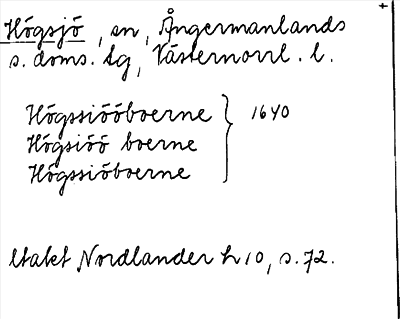 +
Högsjö, sn, Ångermanlands
s. doms. tg, Västernorrl. l.
Högssiööboerne } 1640
Högsiöö boerne
Högssiöboerne
Utakt Nordlander h 10, s. 72.